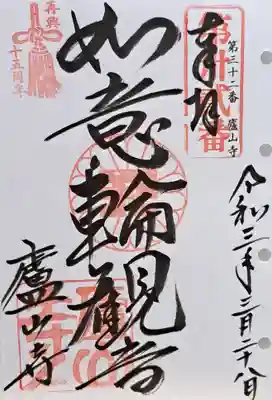 奉拝
第三十二番 廬山寺
令和三年三月二十八日
如意輪観音
廬山寺
再興
十五周年